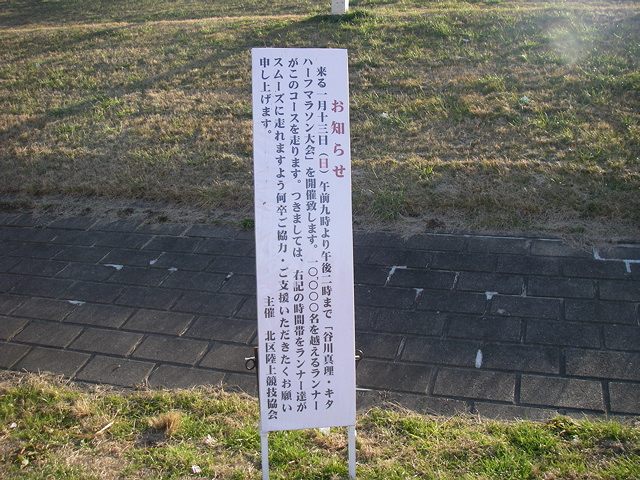 お知らせ
来る一月十三日(日)午前九時より午後二時まで「谷川真理・キタ
ハーフマラソン大会」を開催致します。一〇、〇〇〇名を越えるランナー
がこのコースを走ります。つきましては、右記の時間帯をランナー達が
スムーズに走れますよう何卒ご協力・ご支援いただきたくお願い
申し上げます。
主催 北区陸上競技協会